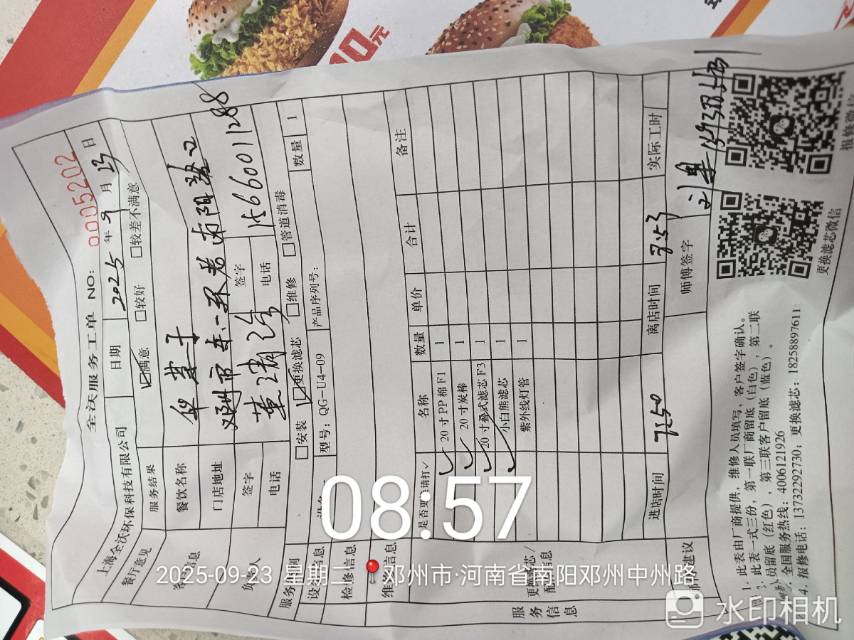 全沃服务工单 NO: 0005202
上海全沃环保科技有限公司 日期 2025 年 9 月 23 日
餐厅意见 服务结果 ☑满意 □较好 □较差不满意
餐饮名称
门店地址
签字 签字
电话 电话 15660011288
服务 □安装 ☑更换滤芯 □维修 □管道消毒 数量 1
型号: QG-U4-09 产品序列号:
检修信息
是否更 请打✓ 名称 数量 单价 合计 备注
✓ 20 寸 PP 棉 F1 1
✓ 20 寸炭棒 1
✓ 20 寸叠式滤芯 F3 1
✓ 小白熊滤芯 1
紫外线灯管 1
服务信息
进店时间 7:50 离店时间 7:53 实际工时
建议 师傅签字
1. 此表由厂商提供, 维修人员填写, 客户签字确认。
2. 此表一式三份, 第一联厂商留底 (白色), 第二联
员留底 (红色), 第三联客户留底 (蓝色)。
全国服务热线: 4006121926
4. 报修电话: 13732292730; 更换滤芯: 18258897611
更换滤芯微信
报修微信
08:57
2025-09-23 星期二 邓州市·河南省南阳邓州中州路
水印相机